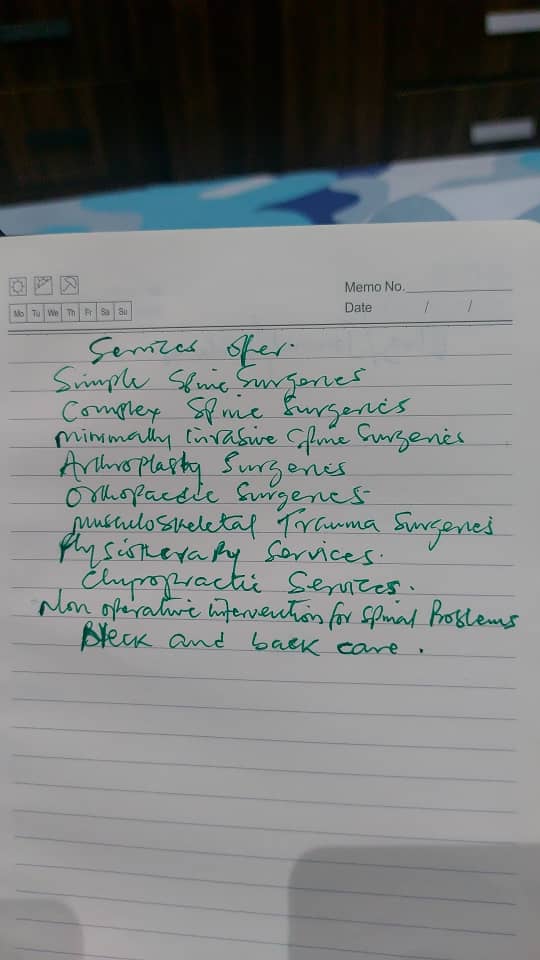 Memo No.
Mo Tu We Th Fr Sa Su
Date / /
Services offer.
Simple Spine Surgeries
Complex Spine Surgeries
minimally invasive Spine Surgeries
Arthroplasty Surgeries
Orthopaedic Surgeries
musculoskeletal Trauma Surgeries
Physiotherapy Services.
Chiropractic Services.
Non operative intervention for Spinal Problems
Neck and back care.